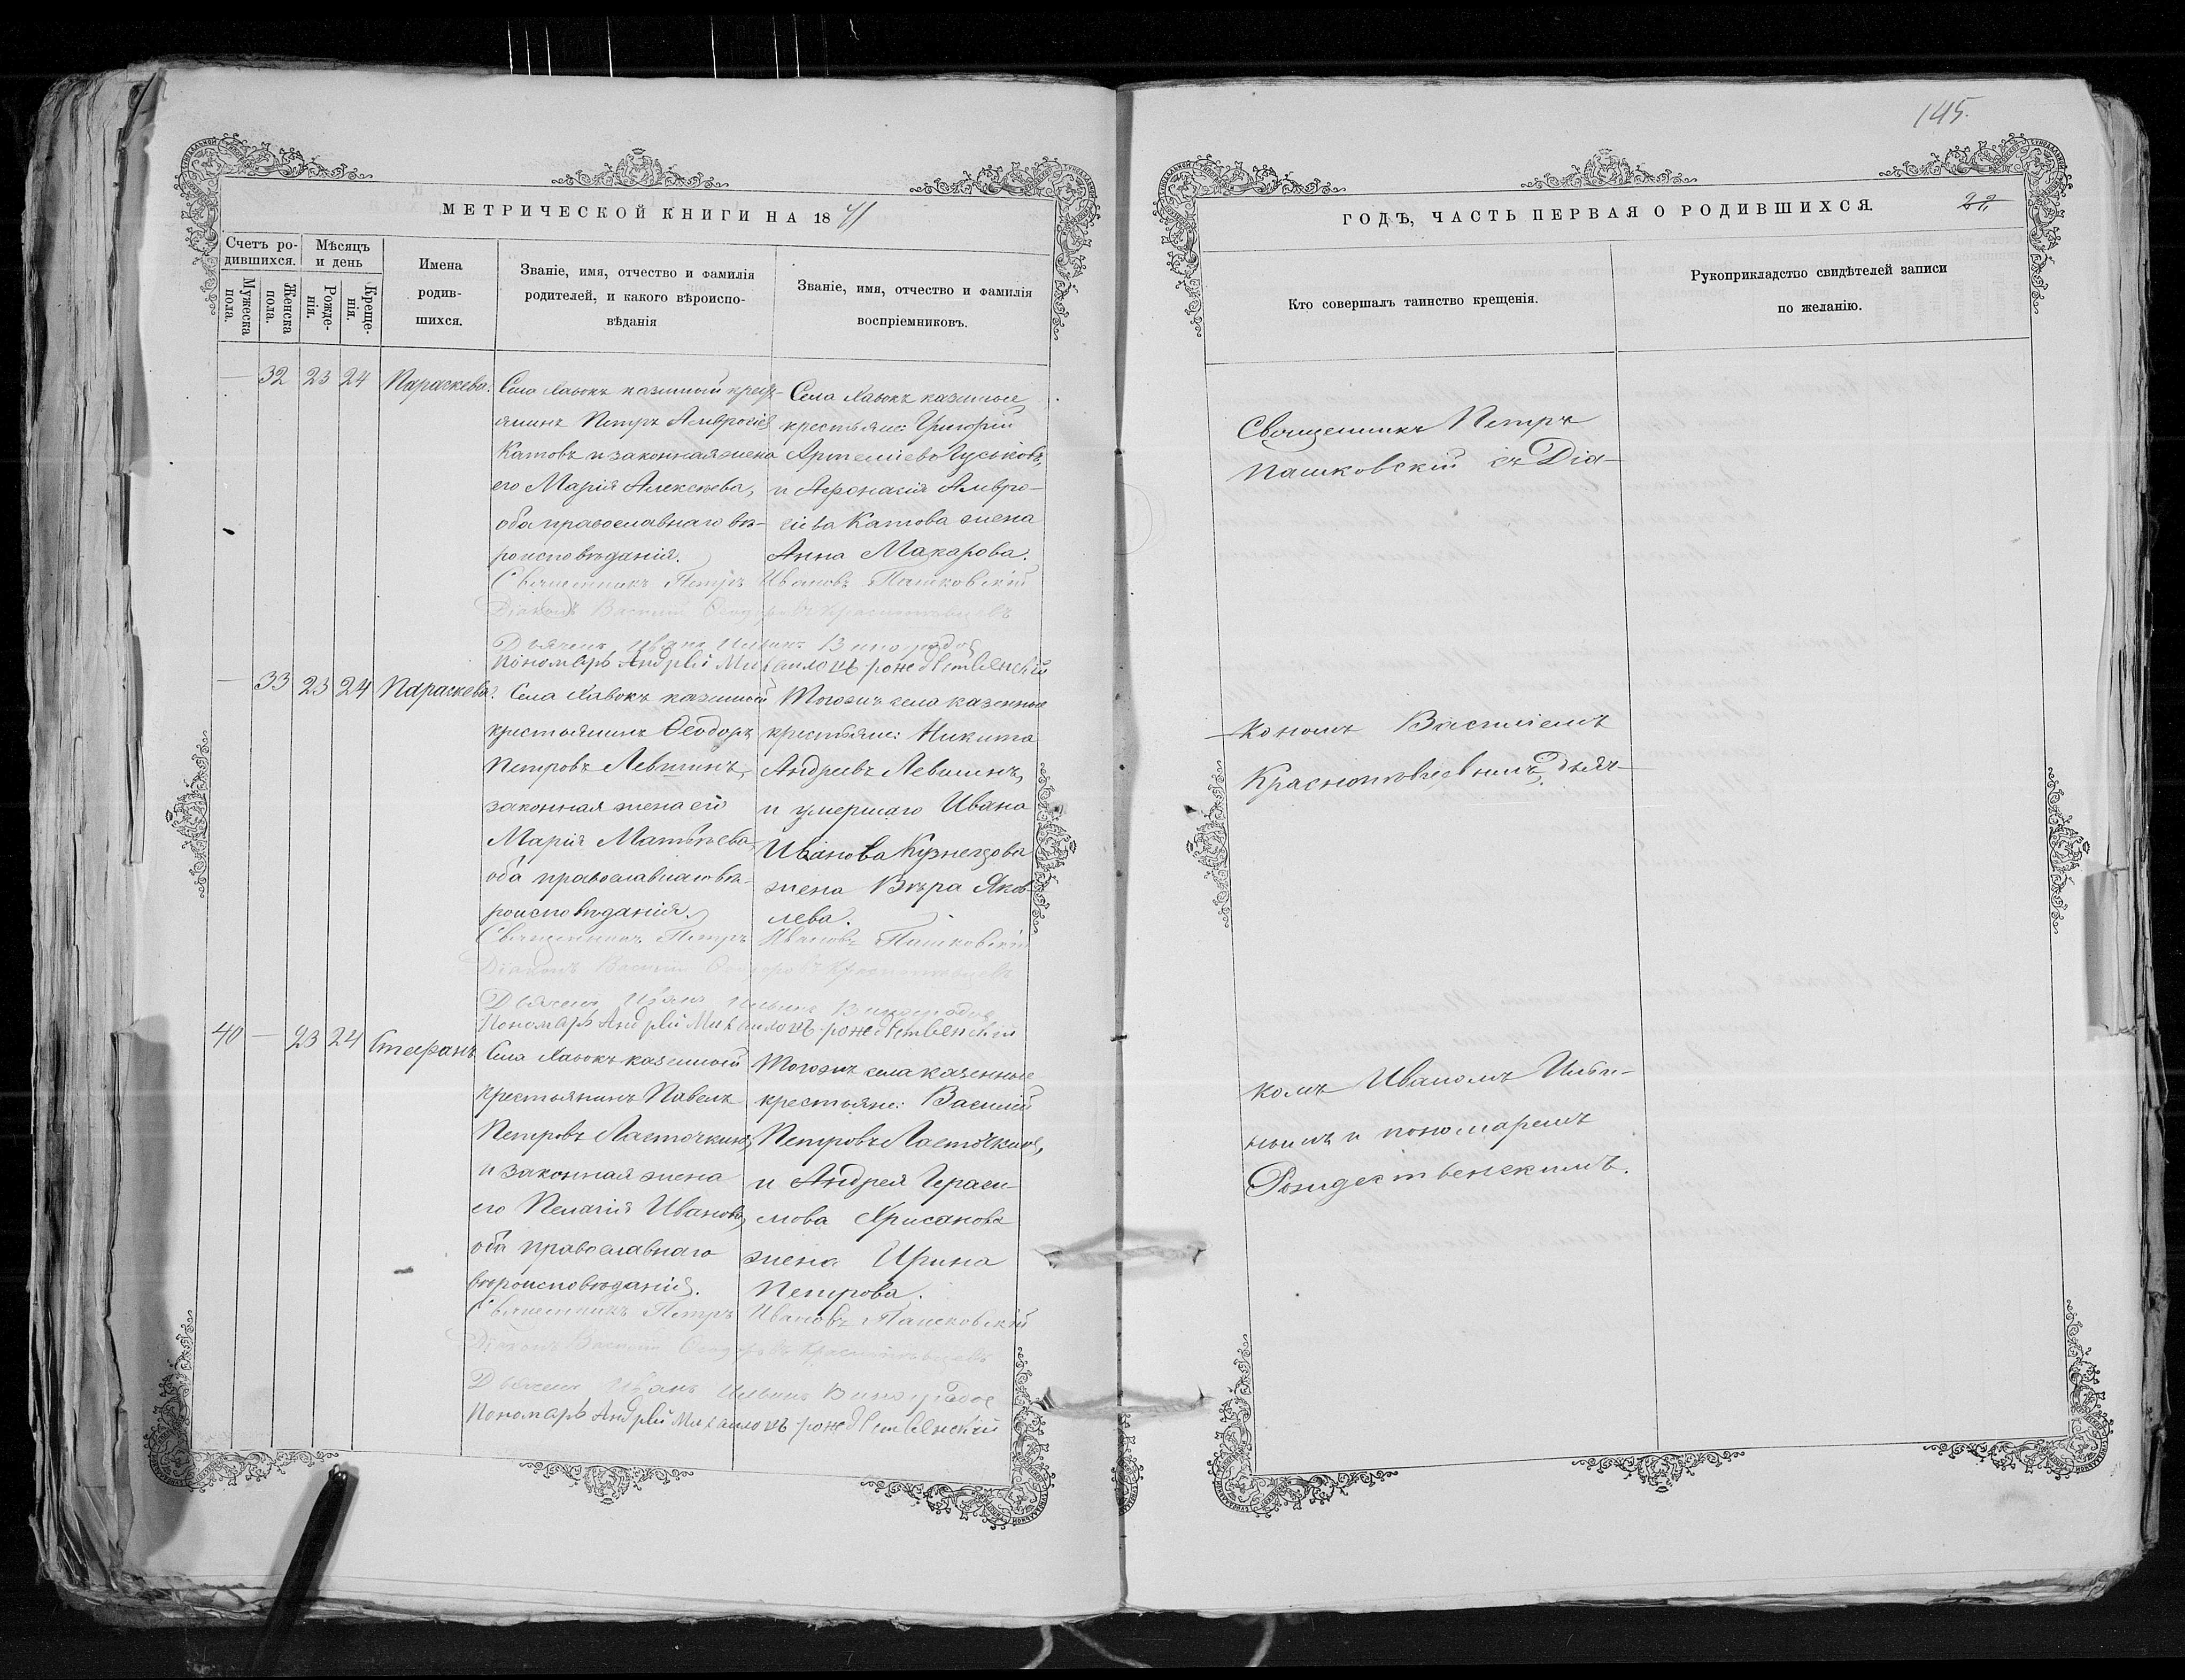 145.
МЕТРИЧЕСКОЙ КНИГИ НА 18
ГОДЪ, ЧАСТЬ ПЕРВАЯ О РОДИВШИХСЯ.
22
Счетъ ро-
дившихся.
Мужеска
пола.
Женска
пола.
Мѣсяцъ
и день
Рожде-
нія.
Креще-
нія.
Имена
родив-
шихся.
Званіе, имя, отчество и фамилія
родителей, и какого вѣроиспо-
вѣданія
Званіе, имя, отчество и фамилія
воспріемниковъ.
Кто совершалъ таинство крещенія.
Рукоприкладство свидѣтелей записи
по желанію.
— 32 23 24 Параскева.
Села казенный крест-
янинъ Петръ Амвросіев
Катовъ и законная жена
его Марія Алексѣева,
оба православнаго вѣ-
роисповѣданія.
Села казенные
крестьяне: Григорій
Артеміевъ Гуськовъ,
и Афонасія Амвро-
сіева Катова жена
Анна Макарова.
Священникъ Петръ Ивановъ Пашковскій
Діаконъ Василій Ѳеодоровъ Краснопѣвцевъ
Дьячекъ Иванъ Ильинъ Виноградов
Пономарь Андрѣй Михаиловъ рождественскій
— 33 23 24 Параскева.
Села казенный
крестьянинъ Ѳеодоръ
Петровъ Левшинъ,
законная жена его
Марія Матвѣева
оба православнаго вѣ-
роисповѣданія.
Тогожъ села казенные
крестьяне: Никита
Андреевъ Левшинъ,
и умершаго Ивана
Иванова Кузнецова
жена Вѣра Яков-
лева.
Священникъ Петръ Ивановъ Пашковскій
Діаконъ Василій Ѳеодоровъ Краснопѣвцевъ
Дьячекъ Иванъ Ильинъ Виноградов
Пономарь Андрѣй Михаиловъ рождественскій
40 — 23 24 Стефанъ
Села казенный
крестьянинъ Павелъ
Петровъ Ласточкинъ,
и законная жена
его Пелагія Иванова,
оба православнаго
вѣроисповѣданія.
Тогожъ села казенные
крестьяне: Василій
Петровъ Ласточкинъ,
и Андрея Гераси-
мова Хрисанова
жена Ирина
Петрова.
Священникъ Петръ Ивановъ Пашковскій
Діаконъ Василій Ѳеодоровъ Краснопѣвцевъ
Дьячекъ Иванъ Ильинъ Виноградов
Пономарь Андрѣй Михаиловъ рождественскій
Священникъ Петръ
Пашковскій съ Діа-
кономъ Василіемъ
Краснопѣвцевымъ, дьяч-
комъ Иваномъ Ильи-
нымъ и пономаремъ
Рождественскимъ.